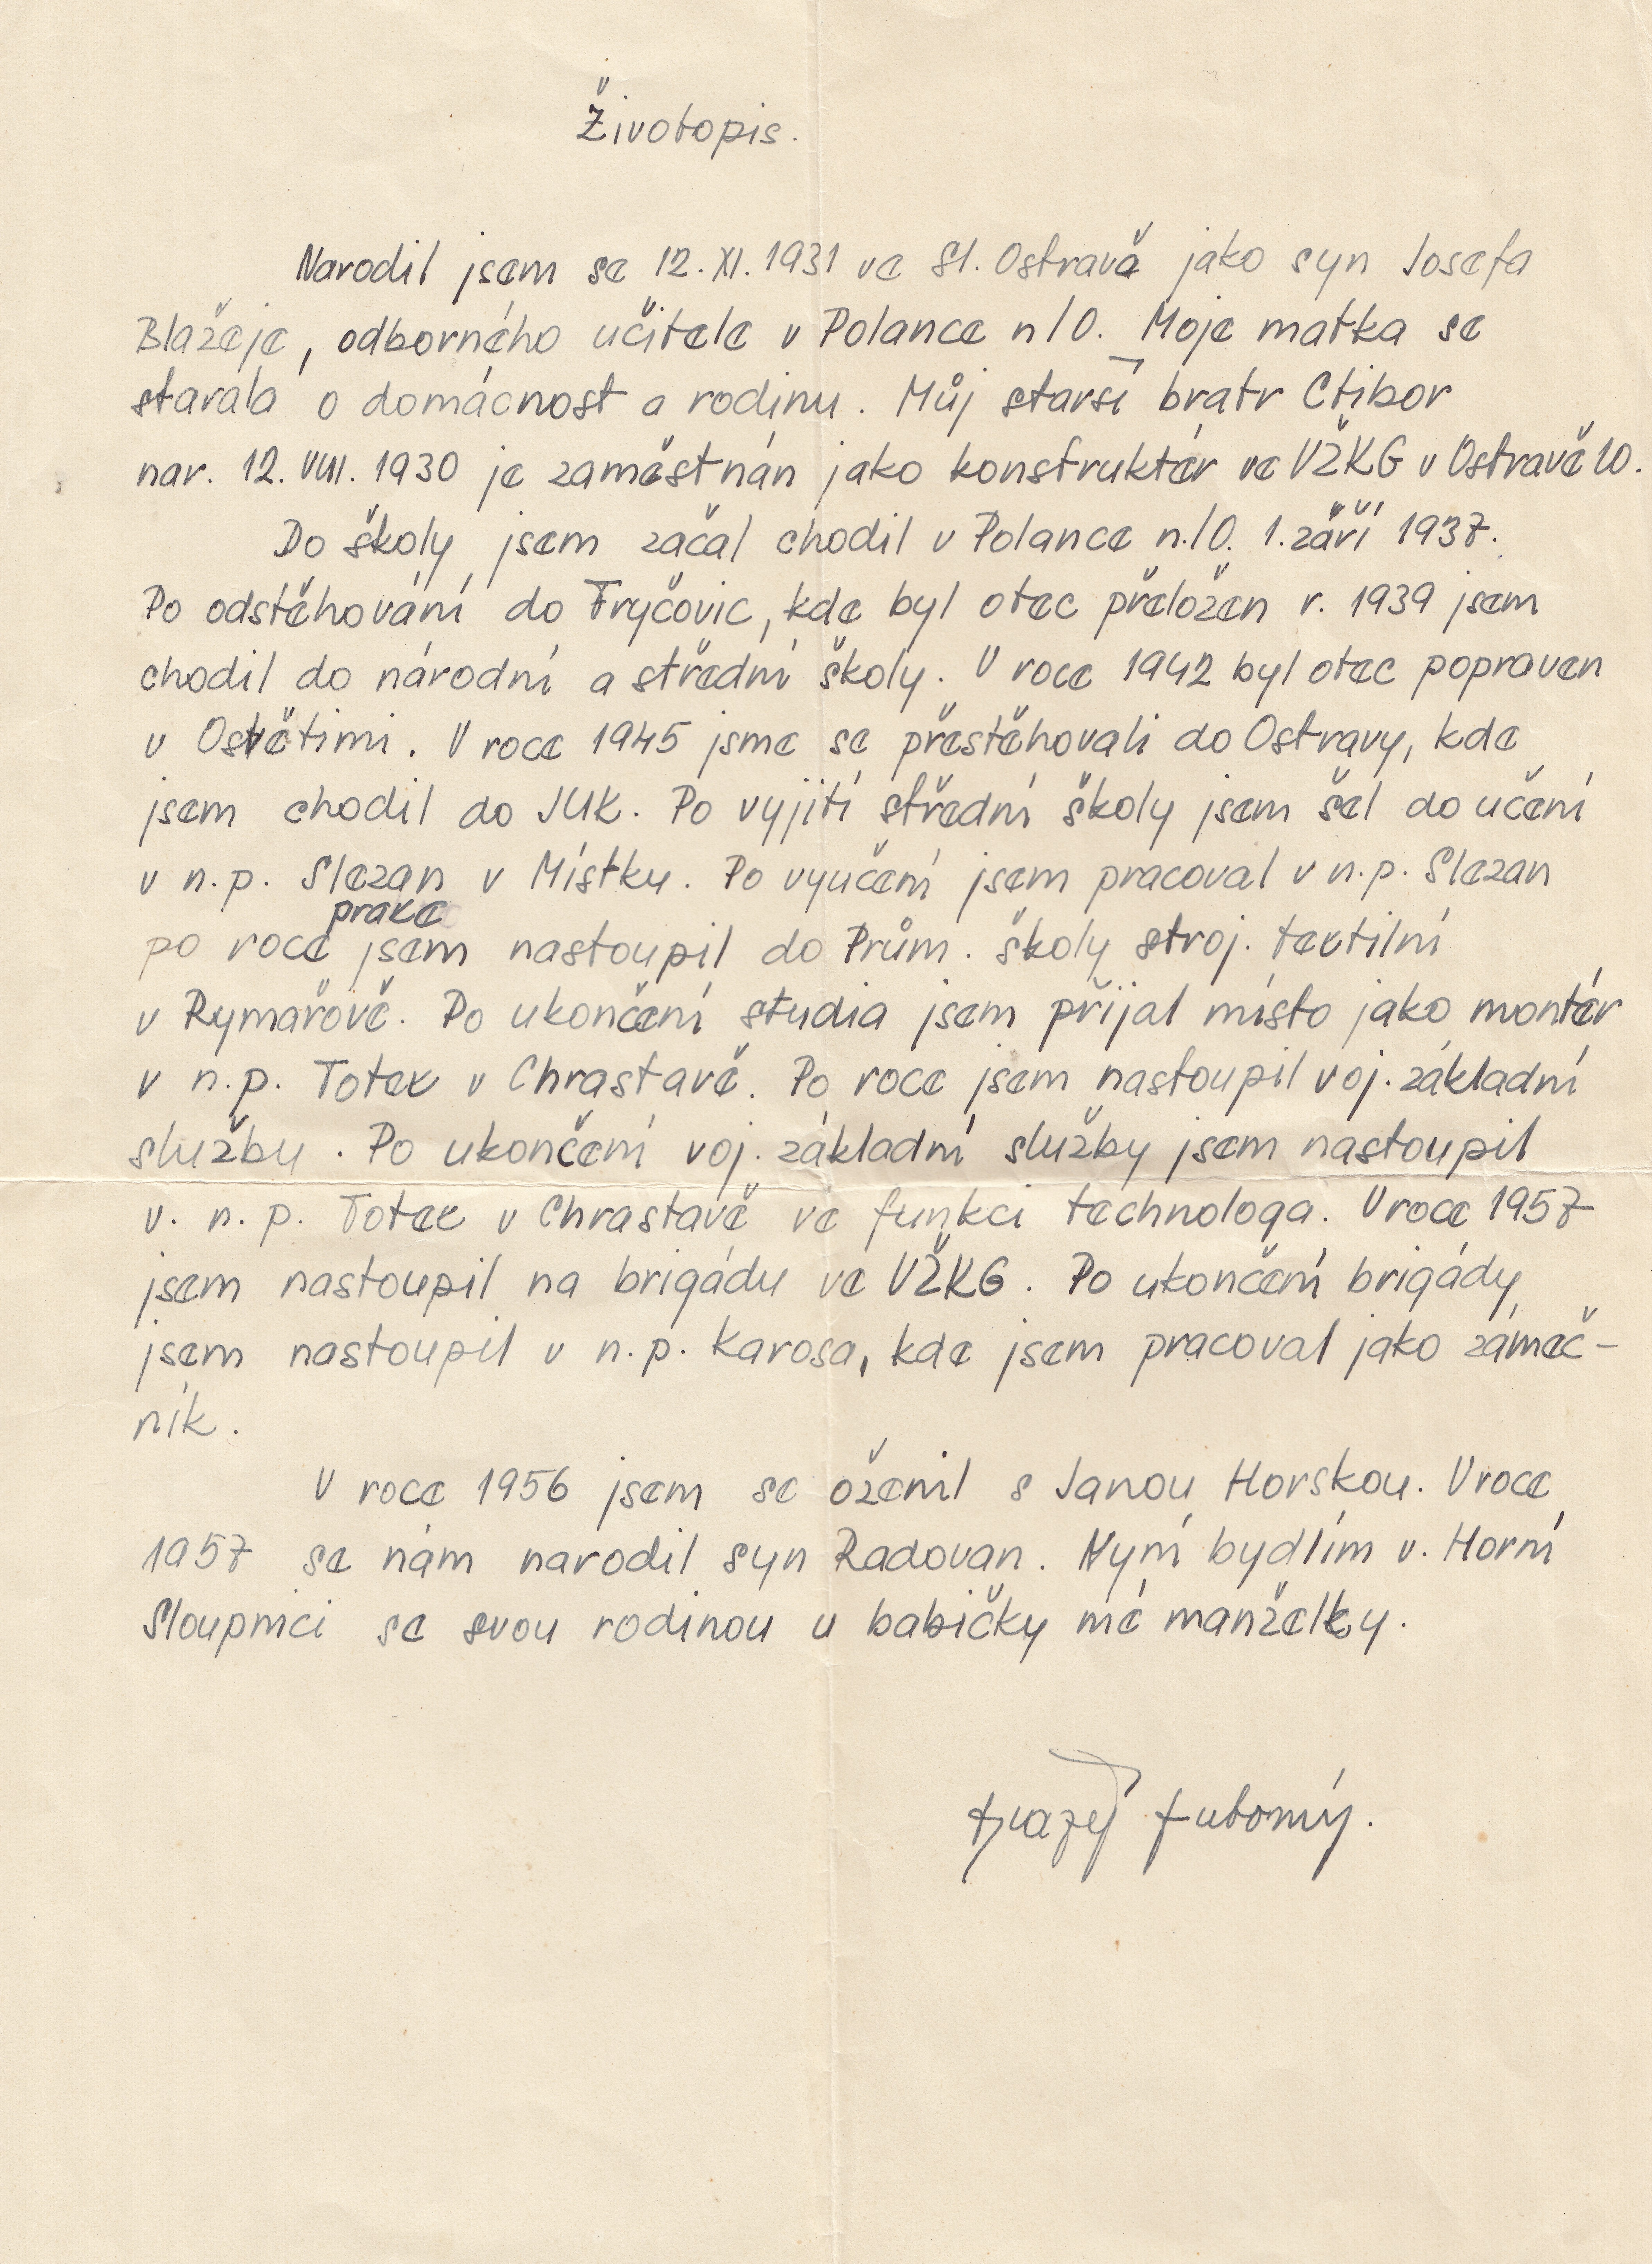 Životopis.
Narodil jsem se 12. XI. 1931 ve Sl. Ostravě jako syn Josefa
Blažeje, odborného učitele v Polance n/O. Moje matka se
starala o domácnost a rodinu. Můj starší bratr Ctibor
nar. 12. VIII. 1930 je zaměstnán jako konstruktér ve VŽKG v Ostravě 10.
Do školy jsem začal chodil v Polance n./O. 1. září 1937.
Po odstěhování do Fryčovic, kde byl otec přeložen r. 1939 jsem
chodil do národní a střední školy. V roce 1942 byl otec popraven
v Osvětimi. V roce 1945 jsme se přestěhovali do Ostravy, kde
jsem chodil do JUK. Po vyjití střední školy jsem šel do učení
v n.p. Slezan v Místku. Po vyučení jsem pracoval v n.p. Slezan
praxe
po roce jsem nastoupil do Prům. školy stroj. textilní
v Rymařově. Po ukončení studia jsem přijal místo jako montér
v n.p. Totex v Chrastavě. Po roce jsem nastoupil voj. základní
službu. Po ukončení voj. základní služby jsem nastoupil
v. n. p. Totex v Chrastavě ve funkci technologa. V roce 1957
jsem nastoupil na brigádu ve VŽKG. Po ukončení brigády
jsem nastoupil v n.p. Karosa, kde jsem pracoval jako zámeč-
ník.
V roce 1956 jsem se oženil s Janou Horskou. V roce
1957 se nám narodil syn Radovan. Nyní bydlím v. Horní
Sloupnici se svou rodinou u babičky mé manželky.
Blažej Lubomír.